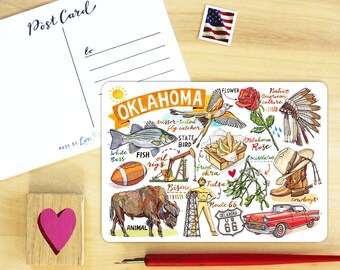 Post Card
to
MADE BY
OKLAHOMA
FLOWER
Native
American
culture
Scissor-tailed
fly catcher
STATE
BIRD
Oklahoma
Rose
White
Bass
FISH
oil
rigs
fried
okra
mistletoe
Bison
Tulsa
cowboys
Route 66
ANIMAL
OKLAHOMA
US
66